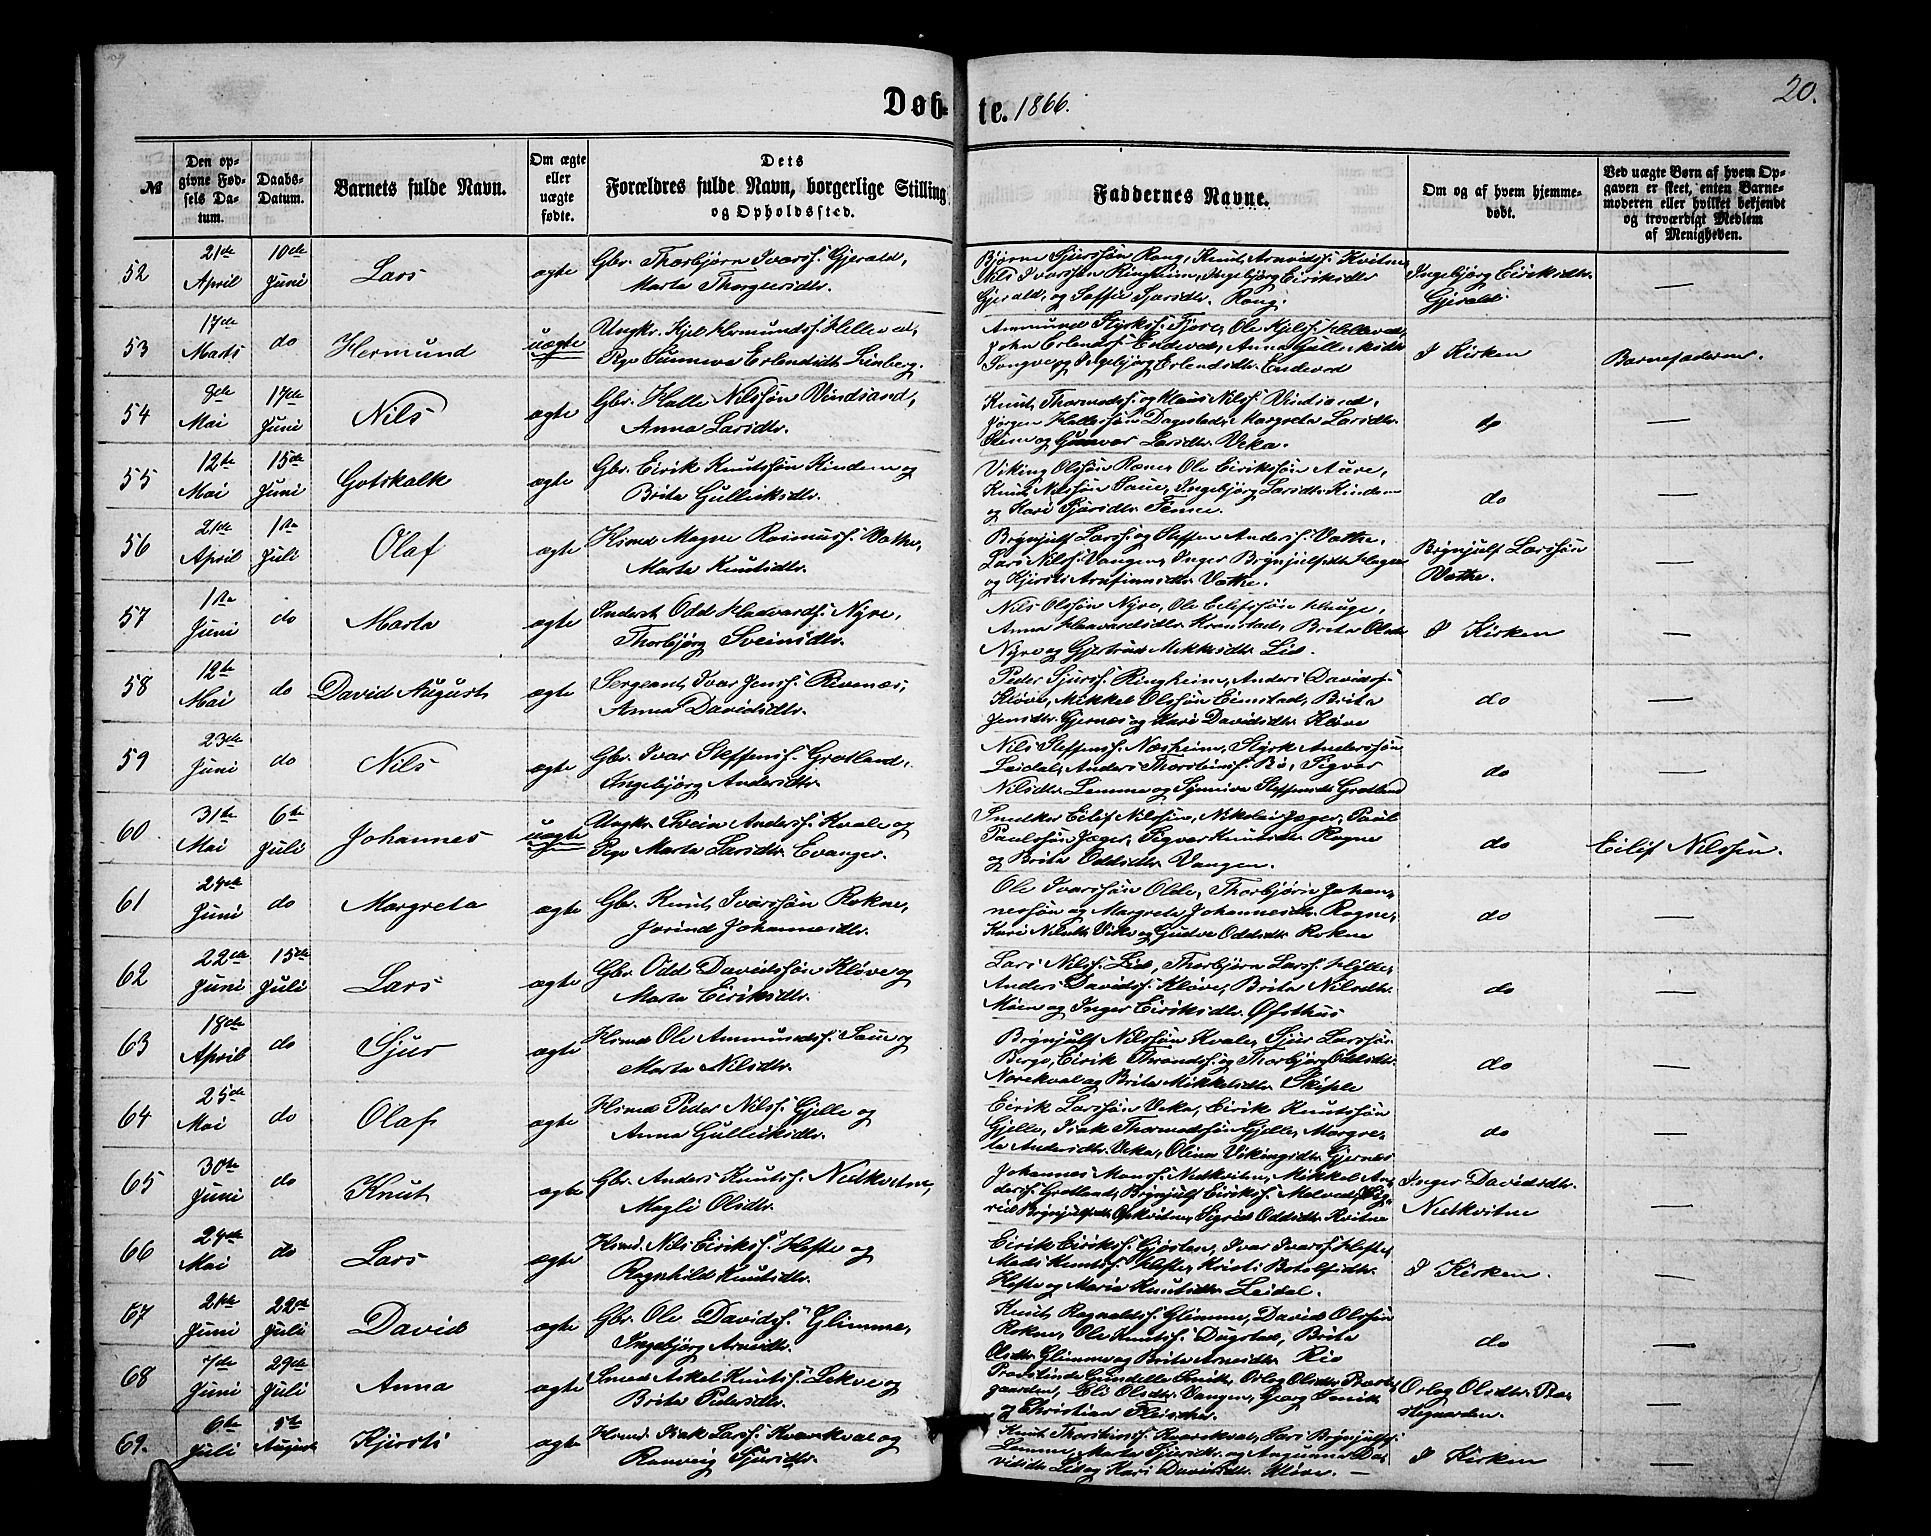 Døb-
te. 1866.
20.
№
Den op-
givne Fød-
sels Da-
tum.
Daabs-
Datum.
Barnets fulde Navn.
Om ægte
eller
uægte
fødte.
Dets
Forældres fulde Navn, borgerlige Stilling
og Opholdssted.
Faddernes Navne.
Om og af hvem hjemme-
døbt.
Ved uægte Børn af hvem Op-
gaven er skeet, enten Barne-
moderen eller hvilket bekjendt
og troværdigt Medlem
af Menigheden.
52
21de
April
10de
Juni
Lars
ægte
Gbr. Thorbjørn Ivarss. Gjerald,
Marta Thorgeirsdtr.
Bjørne Sjursøn Rong, Knut Arnvids. Kvitne,
Nils Ivarssøn Ringheim, Ingebjørg Eiriksdtr
Gjerald, og Soffie Sjursdtr. Rong.
Ingebjørg Eiriksdtr.
Gjerald.
—
53
17de
Marts
do
Hermund
uægte
Ungkr. Kjel Hermundss. Helleved,
Pge Sunneva Erlendsdtr. Lirberg.
Ammund Styrkss. Fjøre, Ole Kjelss. Helleved,
John Erlends. Endeved, Anna Gulleiksdtr
Songve og Ingebjørg Erlendsdtr. Endeved
I Kirken
Barnefaderen
54
9de
Mai
17de
Juni
Nils
ægte
Gbr. Halle Nilssøn Vindsand,
Anna Larsdtr.
Knut Thormodss. og Klaus Nilss. Vindsand,
Jørgen Hallessøn Dagestad, Margreta Larsdtr.
og Gunvor Larsdtr. Veka.
do
—
55
12te
Mai
15de
Juni
Gotskalk
ægte
Gbr. Eirik Knutssøn Kindem og
Brita Gulleiksdtr.
Viking Olssøn Røne, Ole Eirikssøn Auve,
Knut Nilssøn Saue, Ingebjørg Larsdtr. Kindem
og Kari Sjursdtr. Fenne.
do
—
56
21de
April
1ste
Juli
Olaf
ægte
Hsmd Magne Rasmuss. Væthe,
Marta Knutsdtr.
Brynjulf Larss. og Steffen Anderss. Væthe,
Lars Nilss. Vangen, Inger Brynjulfsdtr Hagen
og Kjersti Arnfinnsdtr. Væthe.
Brynjulf Larssøn
Væthe.
—
57
1ste
Juni
do
Marta
ægte
Inderst Odd Havardss. Nyre,
Thorbjørg Sveinsdtr.
Nils Olssøn Nyre, Ole Eilifssøn Hauge,
Anna Haavardsdtr. Kronstad, Brita Olsdtr
Nyre og Gjertrud Mikkelsdtr. Lid.
I Kirken
—
58
12te
Mai
do
David August
ægte
Sergeant Ivar Jenss. Revenæs,
Anna Davidsdtr.
Peder Sjurss. Ringheim, Anders Davidss.
Kløve, Mikkel Olssøn Eimstad, Brita
Jensdtr. Gjernes og Kari Davidsdtr. Kløve
do
—
59
23de
Juni
do
Nils
ægte
Gbr. Ivar Steffenss. Grotland,
Ingebjørg Andersdtr.
Nils Steffenss. Næsheim, Styrk Anderssøn
Leidal, Anders Thorsteinss. Bø, Sigvor
Nilsdtr. Lemme og Synneva Steffensdtr Grotland
do
—
60
31te
Mai
6te
Juli
Johannes
uægte
Ungkr. Svein Anderss. Kvale og
Pge Marta Larsdtr. Evanger.
Snedker Eilif Nilssøn, Nikolai Jæger, Paul
Paulssøn Jæger, Sigvor Knutsdtr Rogne
og Brita Oddsdtr. Vangen.
do
Eilif Nilssøn.
61
24de
Juni
do
Margreta
ægte
Gbr. Knut Ivarssøn Rokne,
Jorind Johannesdtr.
Ole Ivarssøn Olde, Thorbjørn Johan-
nessøn og Margreta Johannesdtr. Rogne,
Kari Nilsdtr. Veka og Gudve Oddsdtr. Rokne
do
—
62
22de
Juni
15de
Juli
Lars
ægte
Gbr. Odd Davidssøn Kløve og
Marta Eiriksdtr.
Lars Nilss. Lid, Thorbjørn Larss. Hylle,
Anders Davidss. Kløve, Brita Nilsdtr.
Møen og Inger Eiriksdtr. Øfsthus
do
—
63
18de
April
do
Sjur
ægte
Hsmd Ole Ammundss. Saue og
Marta Nilsdtr.
Brynjulf Nilssøn Kvale, Sjur Larssøn
Berge, Eirik Throndss. og Thorbjørg Oddsdtr.
Norekval og Brita Mikkelsdtr. Skiple
do
—
64
25de
Mai
do
Olaf
ægte
Hsmd Peder Nilss. Gjelle og
Anna Gulleiksdtr.
Eirik Larssøn Veka, Eirik Knutssøn
Gjelle, Isak Thormodssøn Gjelle, Margre-
ta Andersdtr. Veka, Olina Vikingsdtr. Gjernes
do
—
65
30te
Juni
do
Knut
ægte
Gbr. Anders Knutss. Nedkvitne,
Magli Olsdtr.
Johannes Monss. Nedkvitne, Mikkel An-
derss. Grotland, Brynjulf Eirikss. Melved, Sig-
rid Brynjulfsdtr. Opkvitne, Sigrid Oddsdtr. Kvitne
Inger Davidsdtr.
Nedkvitne
—
66
24de
Mai
do
Lars
ægte
Hsmd. Nils Eirikss. Hefte og
Ragnhild Knutsdtr.
Eirik Eirikss. Gjøsten, Ivar Ivars. Hefte,
Mads Knutss. Hefte, Kristi Botolfsdtr.
Hefte og Maria Knutsdtr. Leidal.
I Kirken.
—
67
21de
Juni
22de
Juli
David
ægte
Gbr. Ole Davidss. Glimme,
Ingebjørg Arnvidtr.
Knut Ragnvaldss. Glimme, David Olssøn
Rokne, Ole Knutss. Dugstad, Brita
Olsdtr. Glimme og Brita Arnvidtr. Rio
do
—
68
7de
Juni
29de
Juli
Anna
ægte
Smed Askel Knutss. Lekve og
Brita Pedersdtr.
Provstinde Gundelle Smitt, Orlog Olsdtr. Præste-
gaarden, Eli Olsdtr. Vangen, Georg Smitt
og Christian Fleischer.
Orlog Olsdtr. Præ-
stegaarden.
—
69.
6te
Juli
5te
August
Kjersti
ægte
Hsmd. Isak Larss. Kvarekval og
Ranveig Sjursdtr.
Knut Thorsteinss. Kvarekval, Lars Brynjulfs.
Lemme, Marta Sjursdtr. og Angunna Da-
vidsdtr. Lid og Kari Davidsdtr. Kløve. —
I Kirken
—